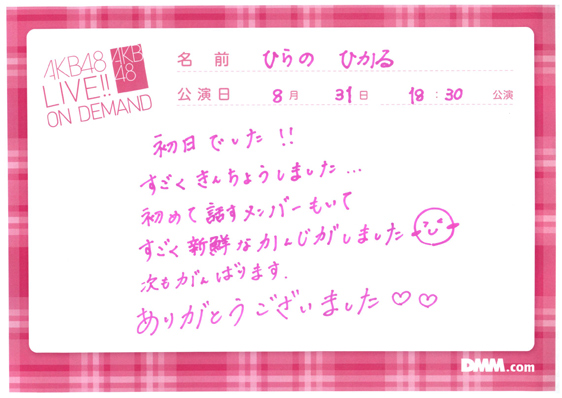 AKB48
LIVE!!
ON DEMAND
AKB
48
名前 ひらの ひかる
公演日 8月 31日 18:30 公演
初日でした!!
すごくきんちょうしました...
初めて話すメンバーもいて
すごく新鮮なかんじがしました
次もがんばります.
ありがとうございました♡♡
DMM.com